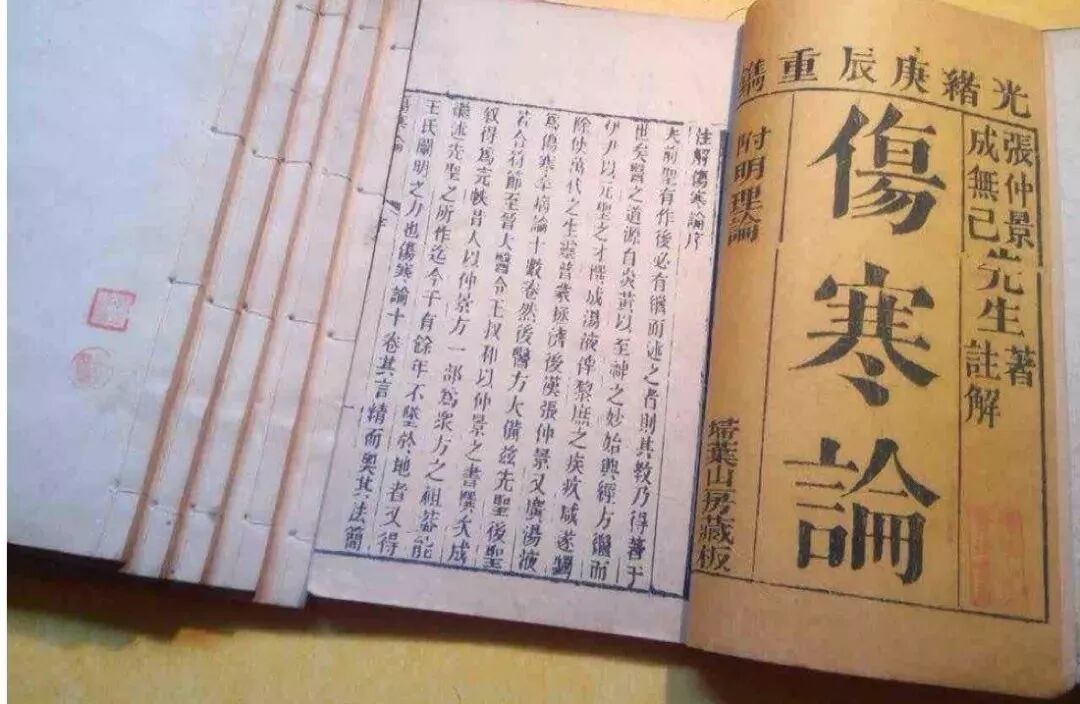 光緒庚辰重鐫
張仲景先生著
成無己先生註解
傷寒論
附明理論
埽葉山房藏板
注解傷寒論序
夫前聖有作後必有繼而述之者則其教乃得著于
世矣醫之道源自炎黃以至神之妙始興經方繼而
伊尹以元聖之才撰成湯液俾黎庶之疾疚咸遂蠲
除使萬代之生靈普蒙拯濟後漢張仲景又廣湯液
爲傷寒卒病論十數卷然後醫方大備茲先聖後聖
若合符節至晉太醫令王叔和以仲景之書撰次成
敘得爲完帙昔人以仲景方一部爲衆方之祖蓋能
繼述先聖之所作迄今千有餘年不墜於地者又得
王氏闡明之力也傷寒論十卷其言精而奧其法簡